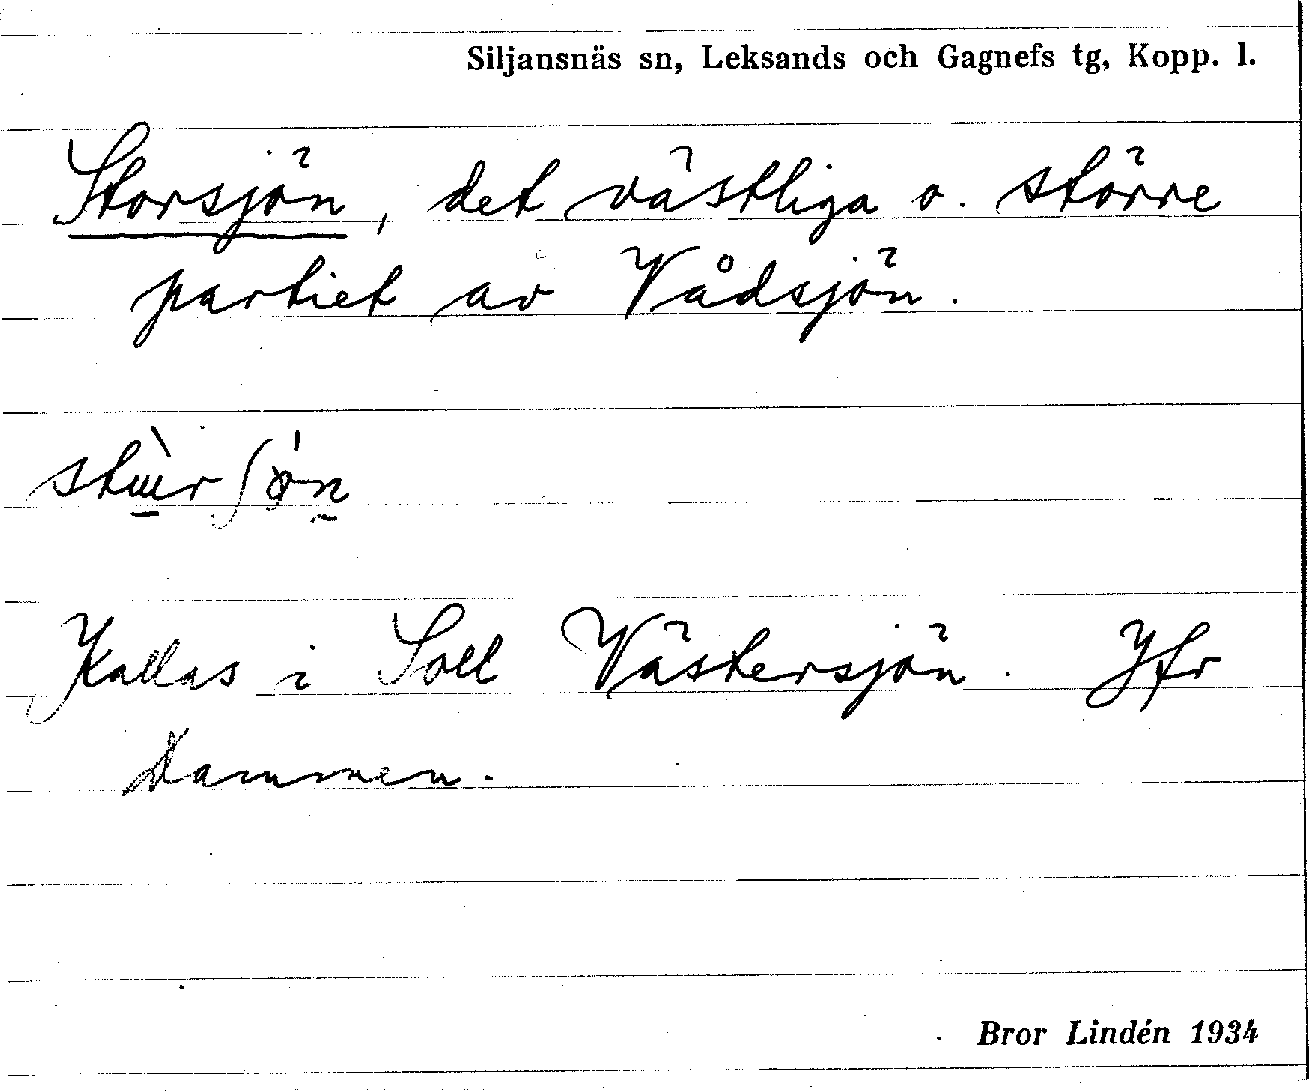 Siljansnäs sn, Leksands och Gagnefs tg, Kopp. l.
Storsjön, det västliga o. större
partiet av Vådsjön.
Kallas i Soll Västersjön. Jfr
Dammen.
Bror Lindén 1934